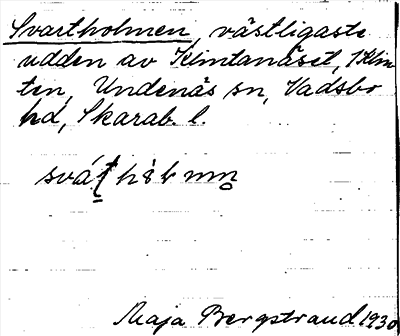 Svartholmen, västligaste
udden av Klintanäset, 1 Klin-
ten, Undenäs sn, Vadsbo
hd, Skarab. l.
Maja Bergstrand 1930